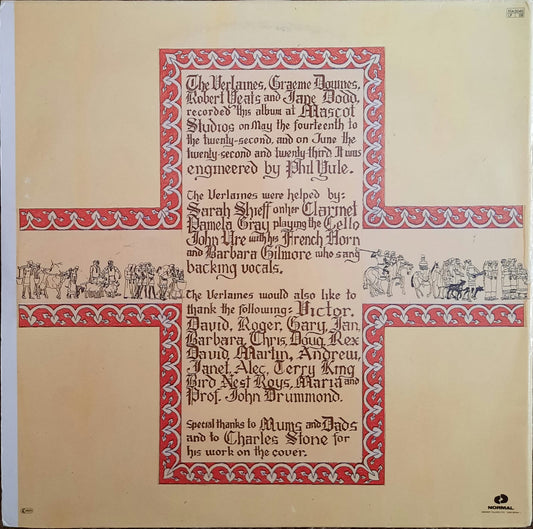 The Verlaines, Graeme Downes,
Robert Yeats and Jane Dodd,
recorded this album at Mascot
Studios on May the fourteenth to
the twenty-second, and on June the
twenty-second and twenty-third. It was
engineered by Phil Yule.
The Verlaines were helped by:
Sarah Shieff on her Clarinet
Pamela Gray playing the Cello
John Ure with his French Horn
and Barbara Gilmore who sang
backing vocals.
The Verlaines would also like to
thank the following: Victor,
David, Roger, Gary, Ian,
Barbara, Chris, Doug, Rex
David, Martin, Andrew,
Janet, Alec, Terry King
Bird Nest Roys, Maria and
Prof. John Drummond.
Special thanks to Mums and Dads
and to Charles Stone for
his work on the cover.
NORMAL